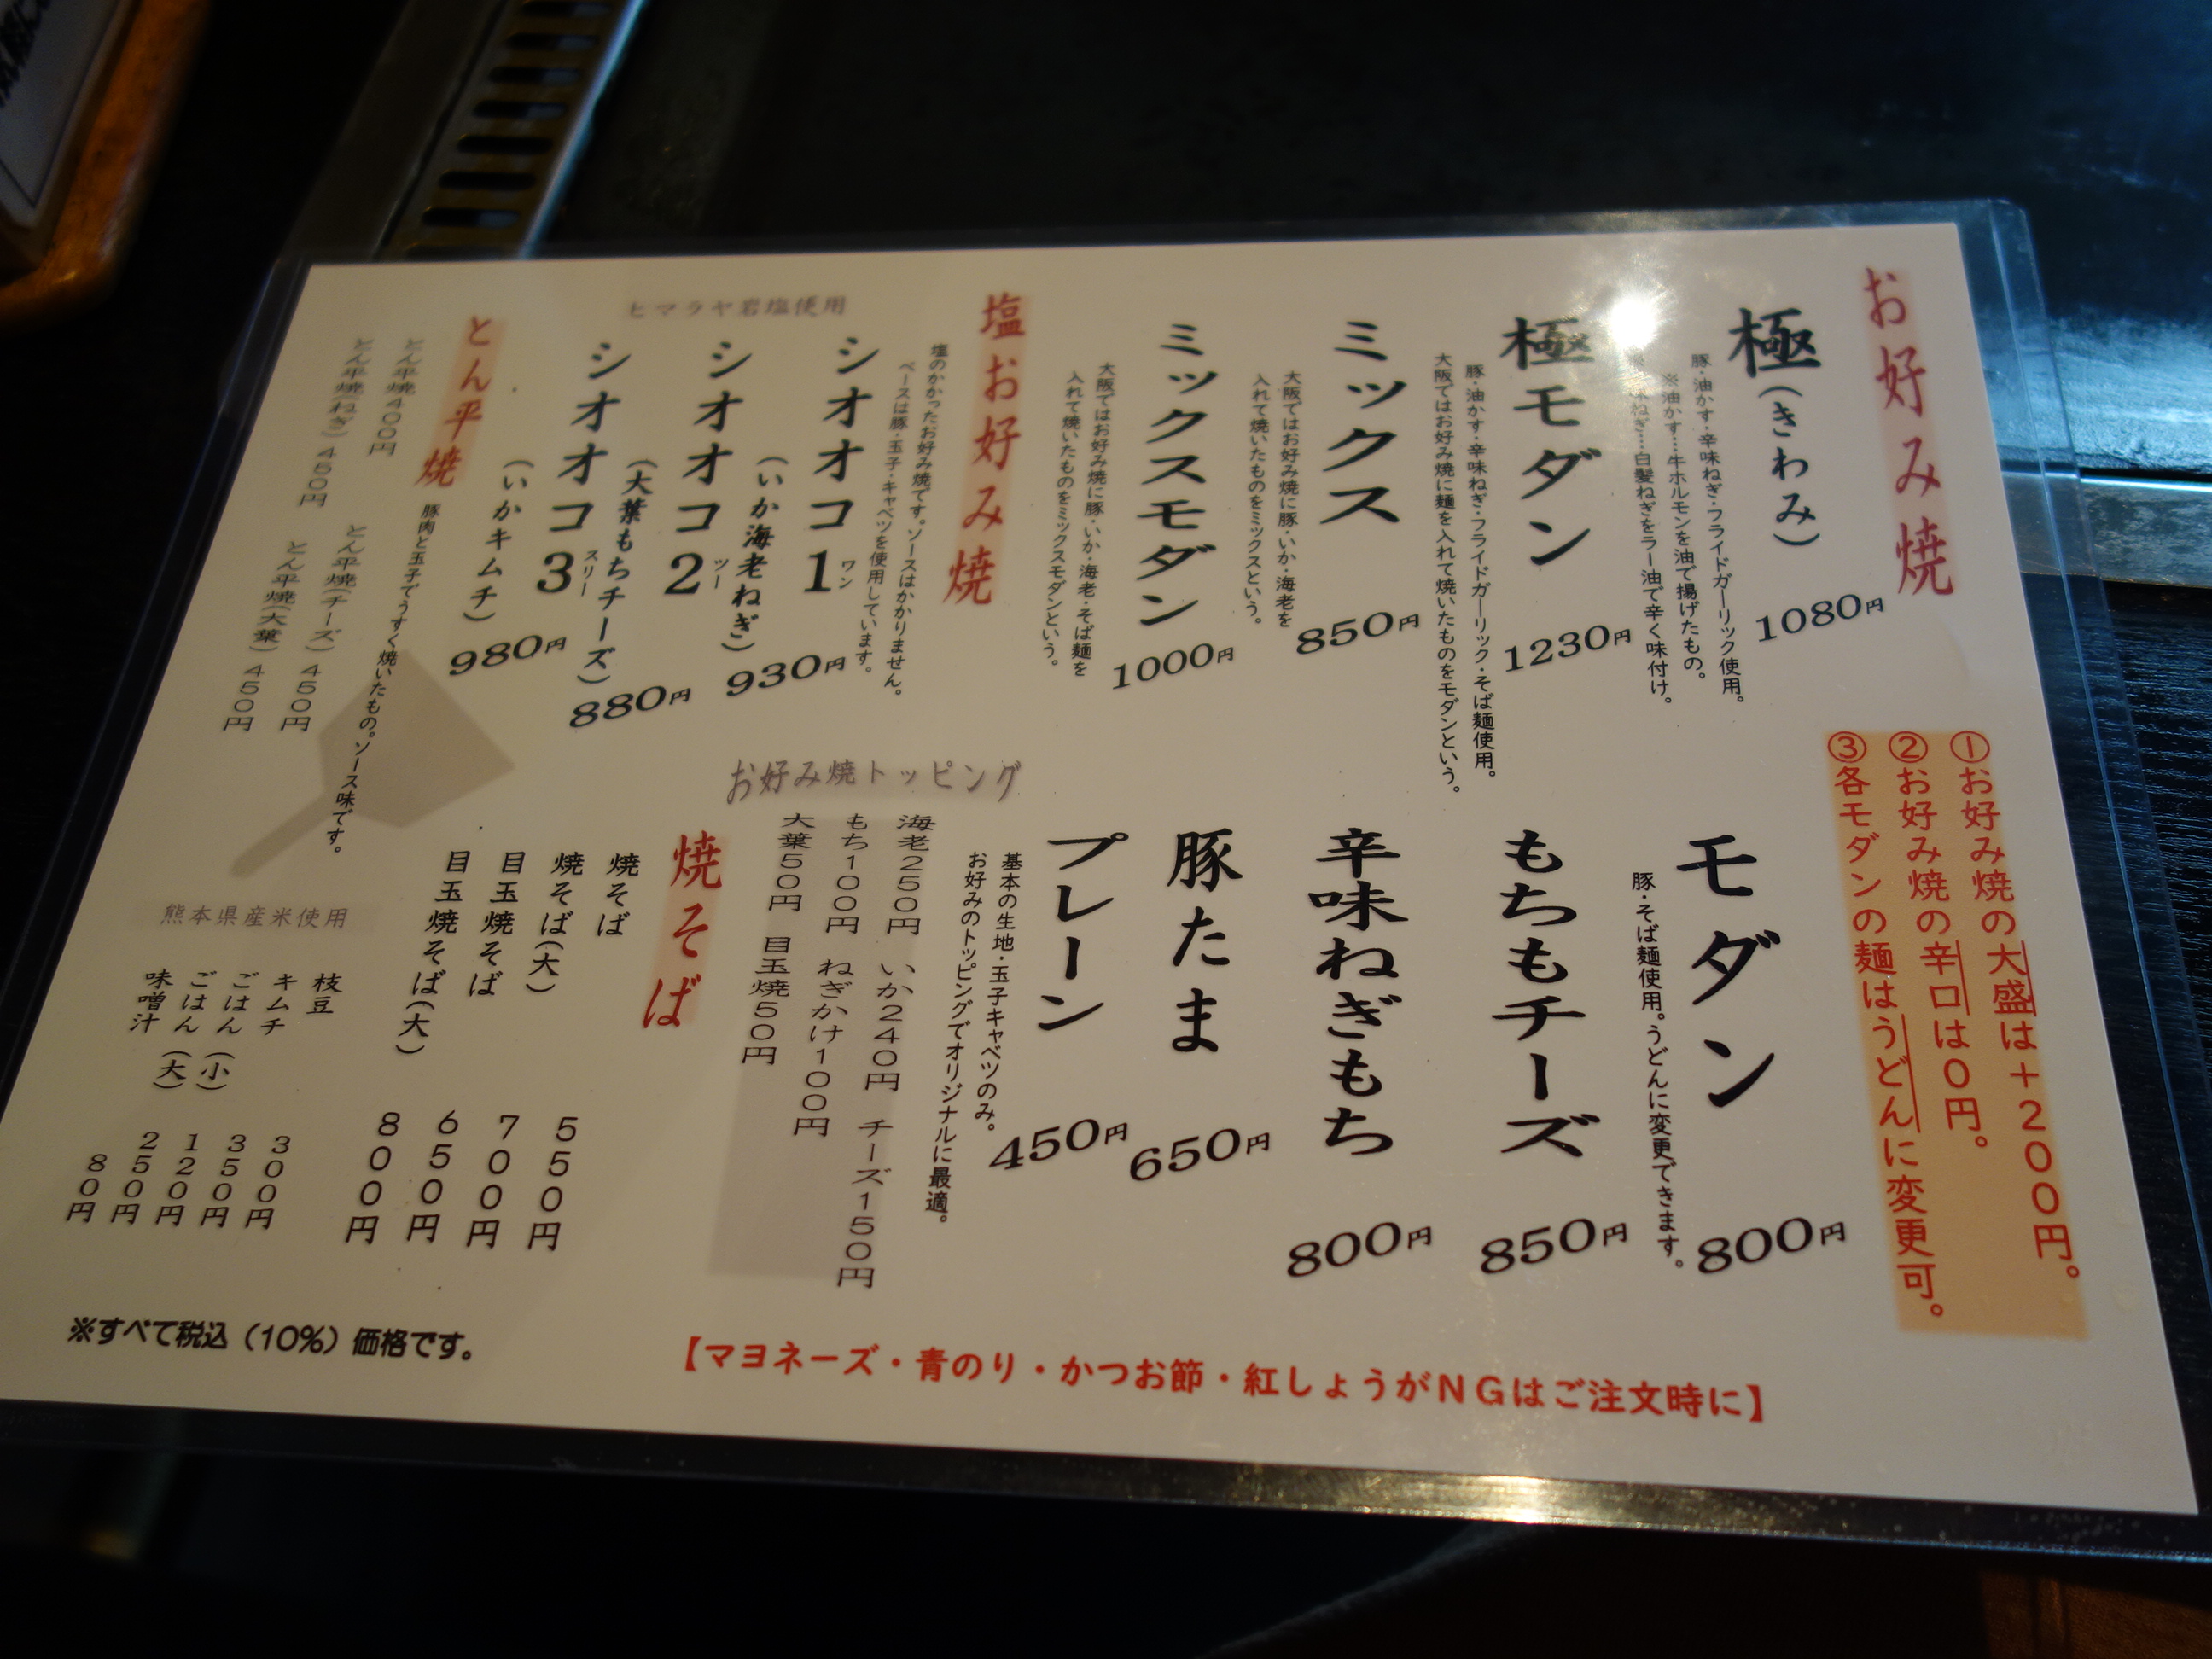 お好み焼
①お好み焼の大盛は＋２００円。
②お好み焼の辛口は０円。
③各モダンの麺はうどんに変更可。
極（きわみ）
1080円
豚・油かす・辛味ねぎ・フライドガーリック使用。
※油かす……牛ホルモンを油で揚げたもの。
ねぎ…白髪ねぎをラー油で辛く味付け。
極モダン
1230円
豚・油かす・辛味ねぎ・フライドガーリック・そば麺使用。
大阪ではお好み焼に麺を入れて焼いたものをモダンという。
ミックス
850円
大阪ではお好み焼に豚・いか・海老を
入れて焼いたものをミックスという。
ミックスモダン
1000円
大阪ではお好み焼に豚・いか・海老・そば麺を
入れて焼いたものをミックスモダンという。
モダン
800円
豚・そば麺使用。うどんに変更できます。
もちもチーズ
850円
辛味ねぎもち
800円
豚たま
650円
プレーン
450円
基本の生地・玉子キャベツのみ。
お好みのトッピングでオリジナルに最適。
塩お好み焼
塩のかかったお好み焼です。ソースはかかりません。
ベースは豚・玉子・キャベツを使用しています。
ヒマラヤ岩塩使用
シオオコ1 ワン
（いか海老ねぎ）
930円
シオオコ2 ツー
（大葉もちチーズ）
880円
シオオコ3 スリー
（いかキムチ）
980円
お好み焼トッピング
海老２５０円　いか２４０円　チーズ１５０円
もち１００円　ねぎかけ１００円
大葉５０円　目玉焼５０円
とん平焼
豚肉と玉子でうすく焼いたもの。ソース味です。
とん平焼４００円
とん平焼（チーズ）４５０円
とん平焼（ねぎ）４５０円
とん平焼（大葉）４５０円
焼そば
焼そば　５５０円
焼そば（大）　７００円
目玉焼そば　６５０円
目玉焼そば（大）　８００円
熊本県産米使用
枝豆　３００円
キムチ　３５０円
ごはん（小）　１２０円
ごはん（大）　２５０円
味噌汁　８０円
【マヨネーズ・青のり・かつお節・紅しょうがＮＧはご注文時に】
※すべて税込（10％）価格です。